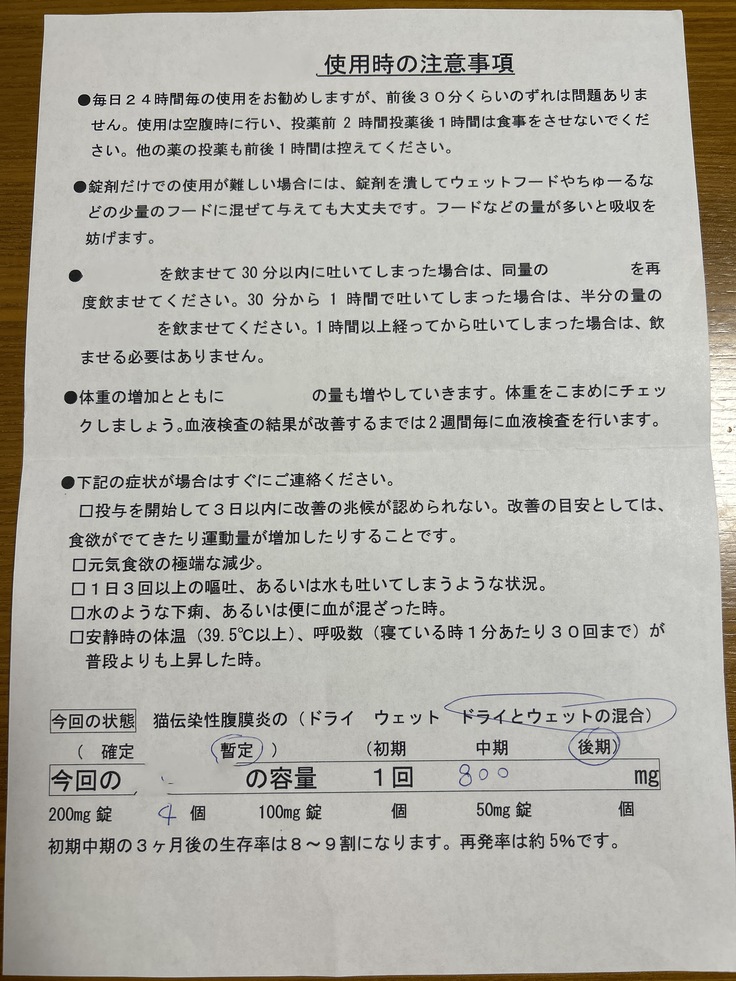 使用時の注意事項
●毎日２４時間毎の使用をお勧めしますが、前後３０分くらいのずれは問題ありま
せん。使用は空腹時に行い、投薬前 2 時間投薬後１時間は食事をさせないでくだ
さい。他の薬の投薬も前後１時間は控えてください。
●錠剤だけでの使用が難しい場合には、錠剤を潰してウェットフードやちゅーるな
どの少量のフードに混ぜて与えても大丈夫です。フードなどの量が多いと吸収を
妨げます。
● を飲ませて 30 分以内に吐いてしまった場合は、同量の を再
度飲ませてください。30 分から 1 時間で吐いてしまった場合は、半分の量の
を飲ませてください。1 時間以上経ってから吐いてしまった場合は、飲
ませる必要はありません。
●体重の増加とともに の量も増やしていきます。体重をこまめにチェッ
クしましょう。血液検査の結果が改善するまでは２週間毎に血液検査を行います。
●下記の症状が場合はすぐにご連絡ください。
□投与を開始して３日以内に改善の兆候が認められない。改善の目安としては、
食欲がでてきたり運動量が増加したりすることです。
□元気食欲の極端な減少。
□１日３回以上の嘔吐、あるいは水も吐いてしまうような状況。
□水のような下痢、あるいは便に血が混ざった時。
□安静時の体温（39.5℃以上）、呼吸数（寝ている時１分あたり３０回まで）が
普段よりも上昇した時。
今回の状態 猫伝染性腹膜炎の（ドライ ウェット ドライとウェットの混合）
（ 確定 暫定 ） （初期 中期 後期）
今回の の容量 １回 800 mg
200mg 錠 4 個 100mg 錠 個 50mg 錠 個
初期中期の３ヶ月後の生存率は８～９割になります。再発率は約 5％です。